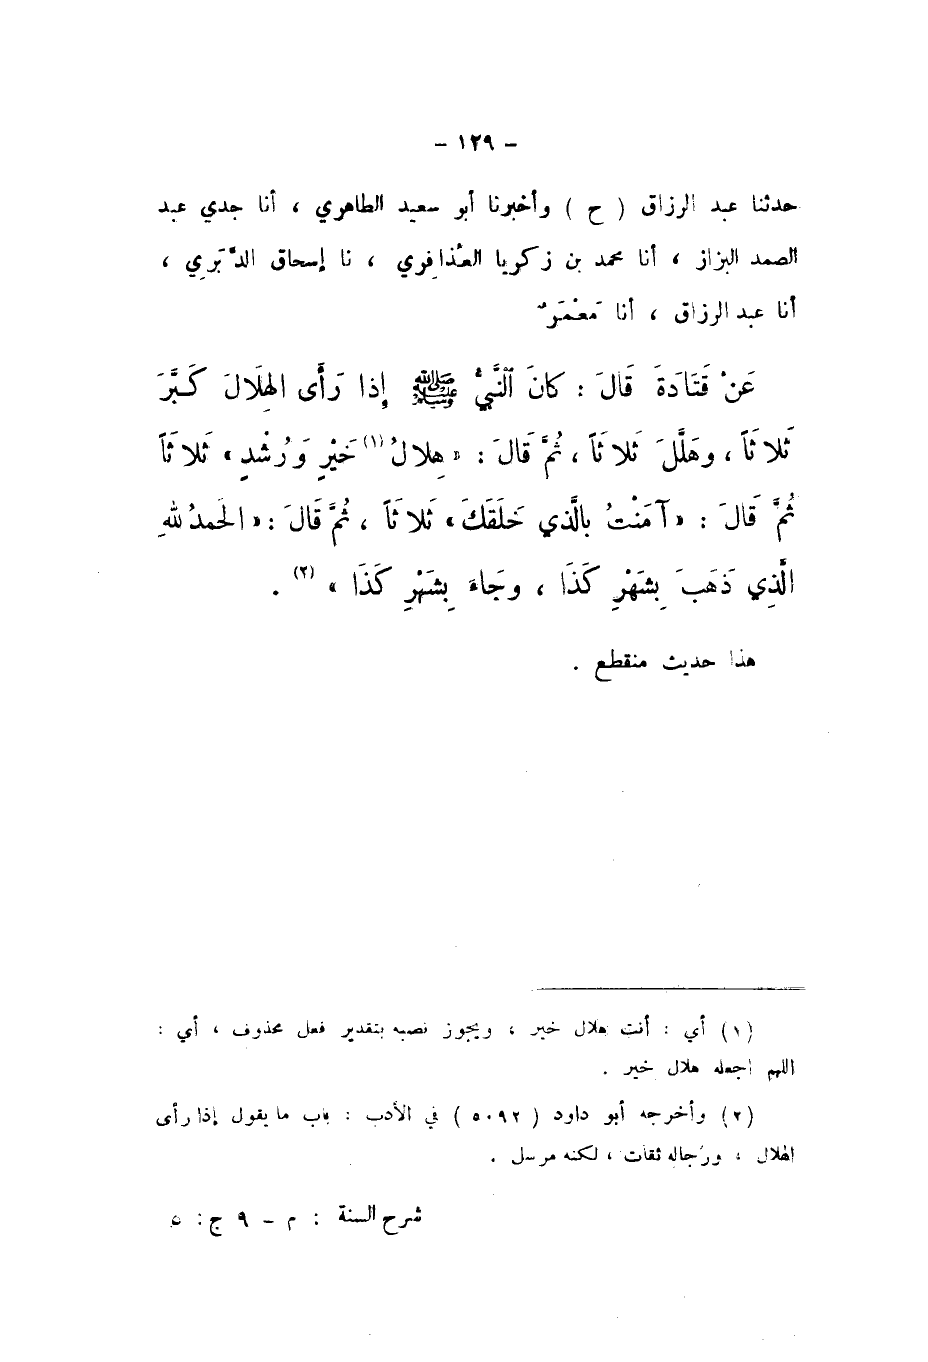 - ١٢٩ -
حدثنا عبد الرزاق ( ح ) وأخبرنا أبو سعيد الطاهري ، أنا جدي عبد
الصمد البزاز ، أنا محمد بن زكريا العُذافِري ، نا إسحاق الدَّبَرِي ،
أنا عبد الرزاق ، أنا مَعْمَرٌ
عَنْ قَتَادَةَ قَالَ : كَانَ ٱلنَّبِيُّ ﷺ إِذا رَأَى الهِلَالَ كَبَّرَ
ثَلاثَاً ، وهَلَّلَ ثَلاثَاً ، ثُمَّ قَالَ : « هِلالُ (١) خَيْرٍ وَرُشْدٍ » ثَلاثَاً
ثُمَّ قَالَ : « آمَنْتُ بِالَّذي خَلَقَكَ » ثَلاثَاً ، ثُمَّ قَالَ : « الحَمدُ للهِ
الَّذِي ذَهَبَ بِشَهْرِ كَذَا ، وجَاءَ بِشَهْرِ كَذَا » (٢) .
هذا حديث منقطع .
(١) أي : أنت هلال خير ، ويجوز نصبه بتقدير فعل محذوف ، أي :
اللهم اجعله هلال خير .
(٢) وأخرجه أبو داود ( ٥٠٩٢ ) في الأدب : باب ما يقول إذا رأى
الهلال ، ورجاله ثقات ، لكنه مرسل .
شرح السنة : م - ٩ ج : ٥